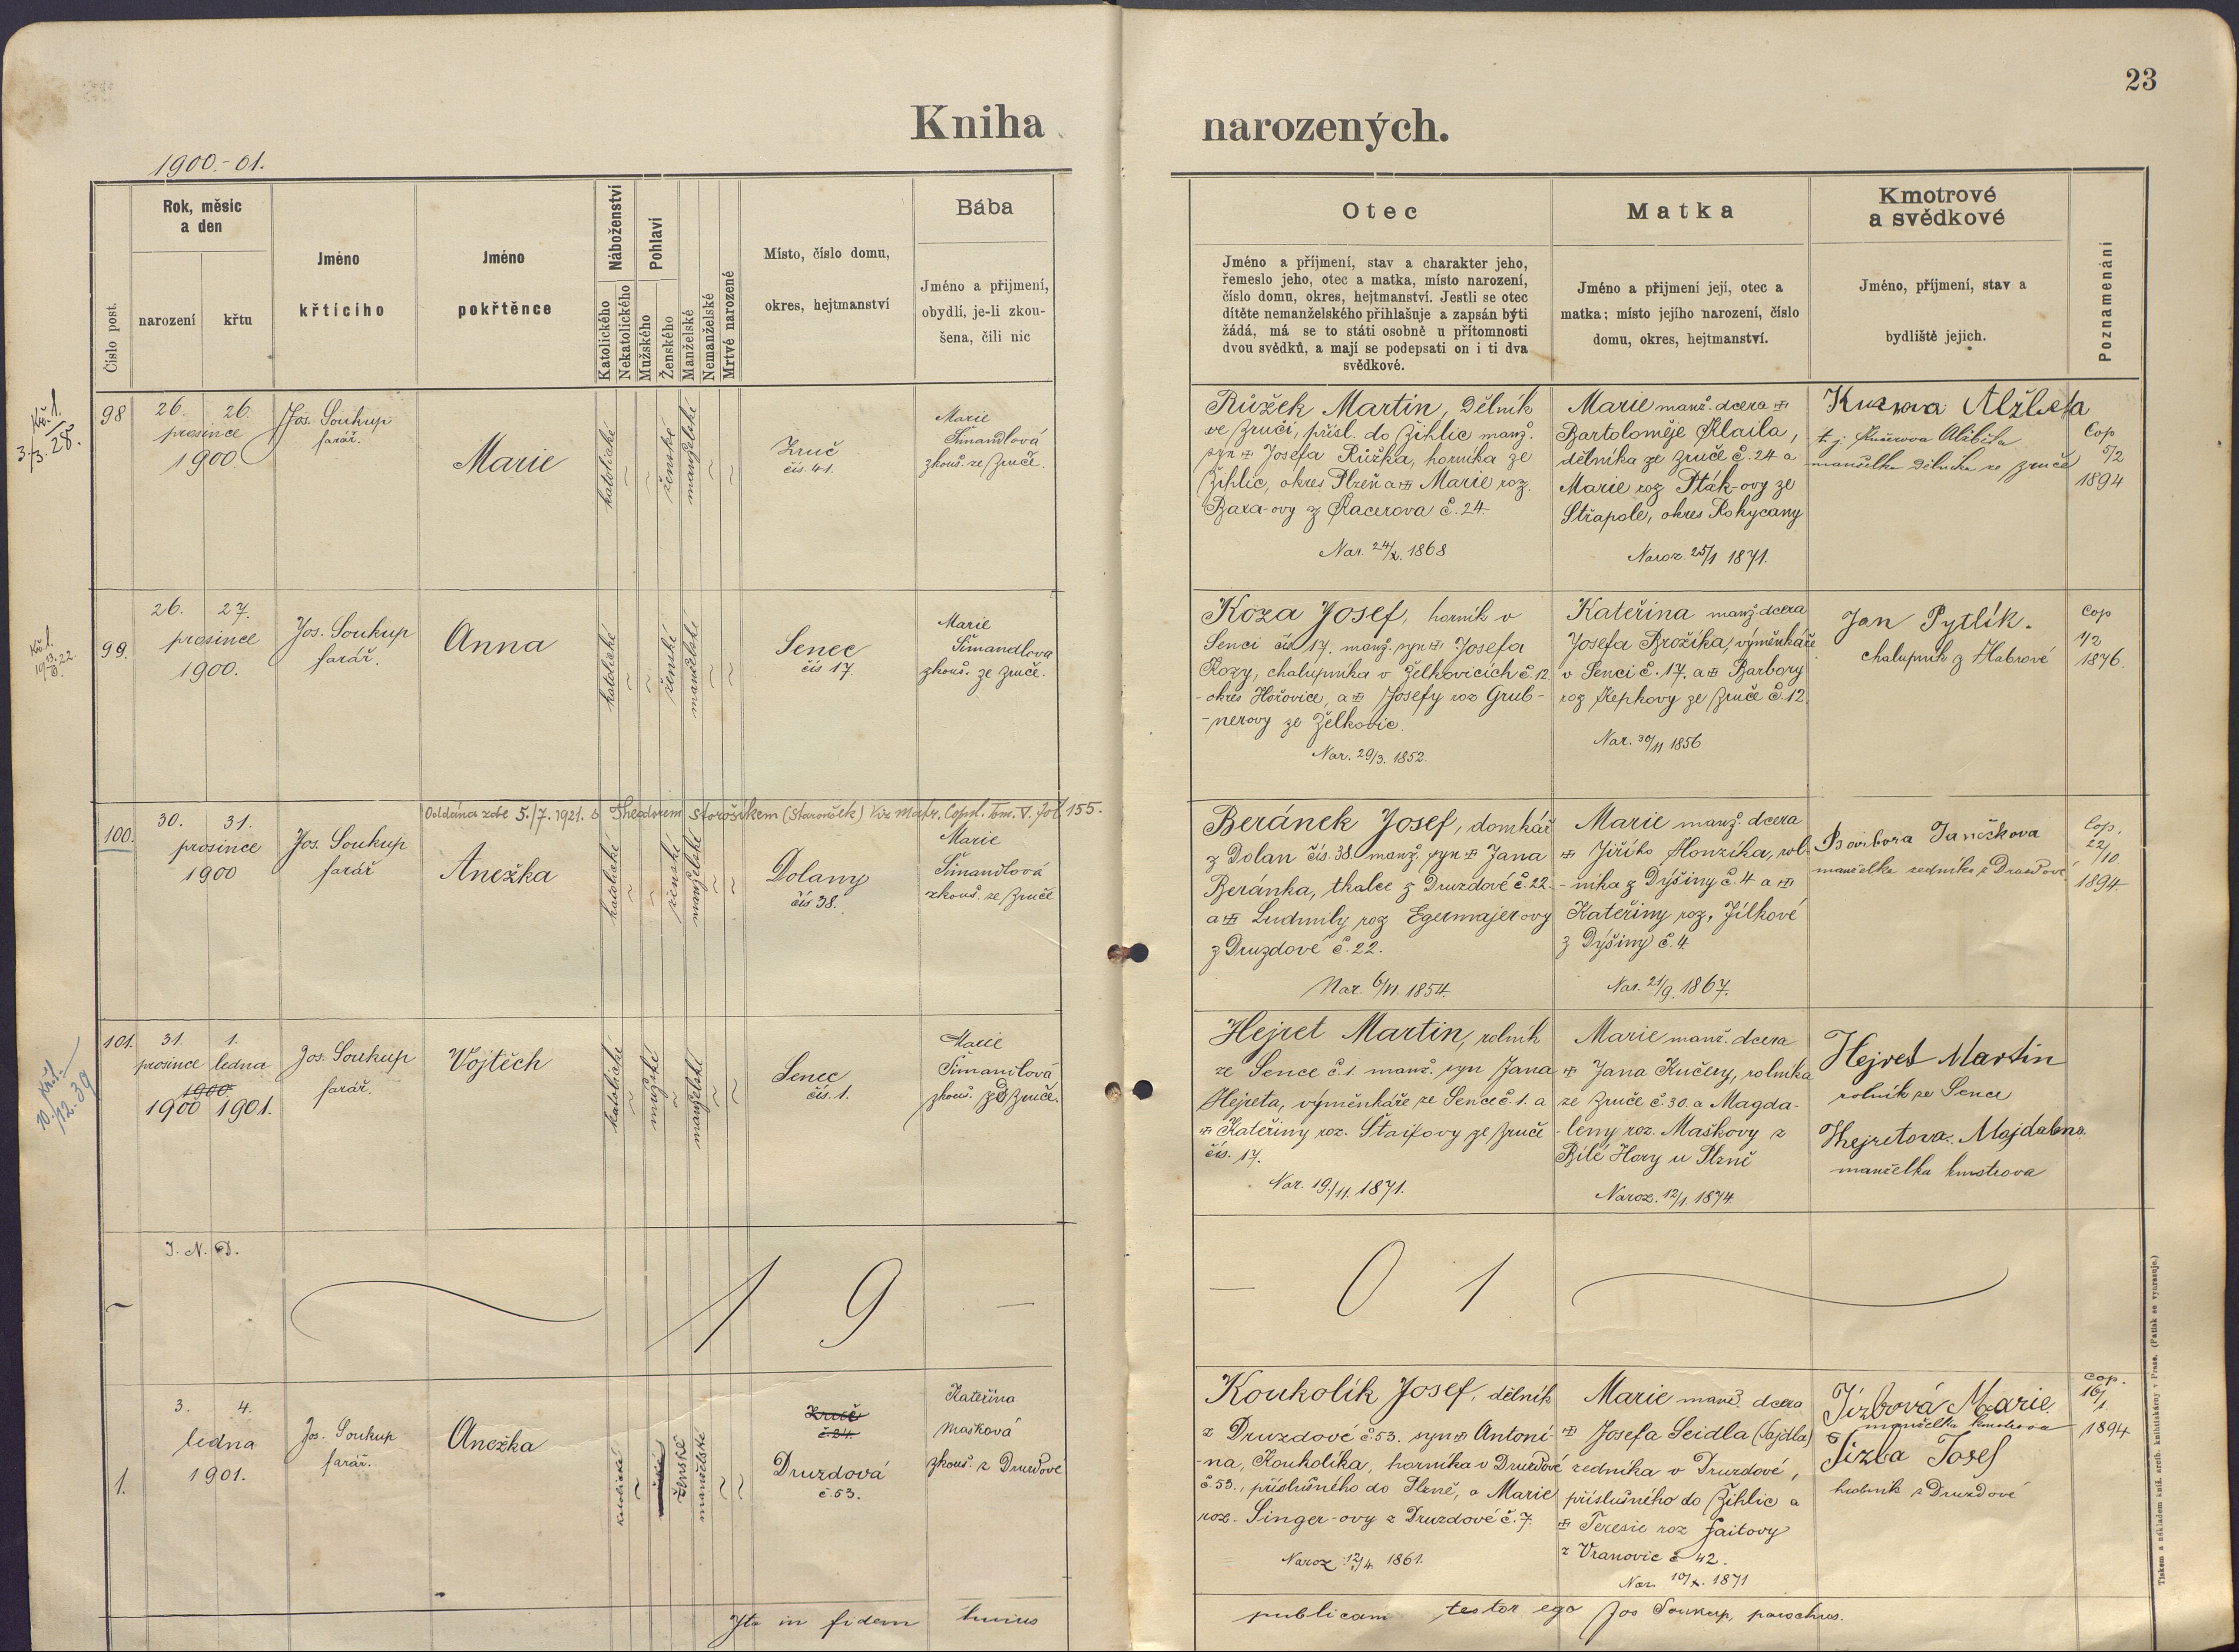 23
Kniha narozených.
1900.-01.
Číslo post.
Rok, měsíc
a den
narození
křtu
Jméno
křticího
Jméno
pokřtěnce
Náboženství
Katolického
Nekatolického
Pohlaví
Mužského
Ženského
Manželské
Nemanželské
Mrtvé narozené
Místo, číslo domu,
okres, hejtmanství
Bába
Jméno a přijmení,
obydlí, je-li zkou-
šena, čili nic
Otec
Jméno a příjmení, stav a charakter jeho,
řemeslo jeho, otec a matka, místo narození,
číslo domu, okres, hejtmanství. Jestli se otec
dítěte nemanželského přihlašuje a zapsán býti
žádá, má se to státi osobně u přítomnosti
dvou svědků, a mají se podepsati on i ti dva
svědkové.
Matka
Jméno a přijmení její, otec a
matka; místo jejího narození, číslo
domu, okres, hejtmanství.
Kmotrové
a svědkové
Jméno, příjmení, stav a
bydliště jejich.
Poznamenání
Kř. l.
3./3. 28.
98
26. 26.
prosince
1900
Jos. Soukup
farář.
Marie
katolické
ženské
manželské
Zruč
čís. 41.
Marie
Šimandlová
zkouš. ze Zruče.
Růžek Martin, dělník
ve Zruči, přísl. do Žihlic manž.
syn Josefa Růžka, horníka ze
Žihlic, okres Plzeň a Marie roz.
Baxa-ovy z Kacerova č. 24.
Nar. 24/X. 1868
Marie manž. dcera
Bartoloměje Klaila,
dělníka ze Zruče č. 24 a
Marie roz Pták-ovy ze
Střapole, okres Rokycany
Naroz. 25/1 1871.
Alžběta
manželka dělníka ze Zruče
Cop
5/2
1894
Kř. l.
99.
26. 27.
prosince
1900.
Jos. Soukup
farář.
Anna
katolické
ženské
manželské
Senec
čís 17.
Marie
Šimandlová
zkouš. ze Zruče.
Koza Josef, horník v
Senci čís 17. manž. syn Josefa
Kozy, chalupníka v Želkovicích č. 12
-okres Hořovice, a Josefy roz Grub-
-nerovy ze Želkovic.
Nar. 29/3. 1852.
Kateřina manž. dcera
Josefa Brožíka, výměnkáře
v Senci č. 17. a Barbory
roz Řepkovy ze Zruče č. 12.
Nar. 30/11 1856
Jan Pytlík.
chalupník z Habrové
Cop
1/2
1876.
Oddána zde 5./7. 1921. s Theodorem Storošíkem (Starouček) Viz Matr. Copul. Tom. V. fol 155.
100.
30. 31.
prosince
1900
Jos. Soukup
farář
Anežka
katolické
ženské
manželské
Dolany
čís 38.
Marie
Šimandlová
zkouš. ze Zruče
Beránek Josef, domkář
z Dolan čís. 38 manž. syn Jana
Beránka, tkalce z Druzdové č. 22.
a Ludmily roz Egermajerovy
z Druzdové č. 22.
Nar. 6/11. 1854.
Marie manž. dcera
Jiřího Honzíka, rol-
-níka z Dýšiny č. 4 a
Kateřiny roz. Jílkové
z Dýšiny č. 4
Nar. 21/9. 1867.
Janečkova
manželka zedníka z Druzdové
Cop.
22/10.
1894.
10. Kř. l.
/12. 39
101.
31. 1.
prosince ledna
1900.
1900 1901.
Jos. Soukup
farář.
Vojtěch
katolické
mužské
manželské
Senec
čís. 1.
Marie
Šimandlová
zkouš. ze Zruče.
Hejret Martin, rolník
ze Sence č. 1. manž. syn Jana
Hejreta, výměnkáře ze Sence č. 1. a
Kateřiny roz. Štaifovy ze Zruče
čís. 17.
Nar. 19./11. 1871.
Marie manž. dcera
Jana Kučery, rolníka
ze Zruče č. 30. a Magda-
-leny roz. Maškovy z
Bílé Hory u Plzně
Naroz. 12/1. 1874.
Hejret Martin
rolník ze Sence
Hejretova Majdalena
manželka kmotrova
J. N. D.
1 9 — — 0 1
1.
3. 4.
ledna
1901.
Jos. Soukup
farář.
Anežka
katolické
mužské
ženské
manželské
Zruč
č. 24.
Druzdová
č. 53.
Kateřina
Mašková
zkouš. z Druzdové
Koukolík Josef, dělník
z Druzdové č 53. syn Antoní-
-na, Koukolíka, horníka v Druzdové
č. 53., příslušného do Plzně, a Marie
roz. Singer-ovy z Druzdové č. 7.
Naroz 12/4. 1861.
Marie manž. dcera
Josefa Seidla (Sajdla)
zedníka v Druzdové,
příslušného do Žihlic a
Teresie roz Faitovy
z Vranovic č 42.
Nar. 10/X. 1871
Jízbová Marie
manželka kmotrova
Jízba Josef
z Druzdové
Cop.
16/1
1894
Ita in fidem huius publicam testor ego Jos Soukup, parochus.
Tiskem a nákladem kníž. arcib. knihtiskárny v Praze. (Patisk se vyhrazuje.)